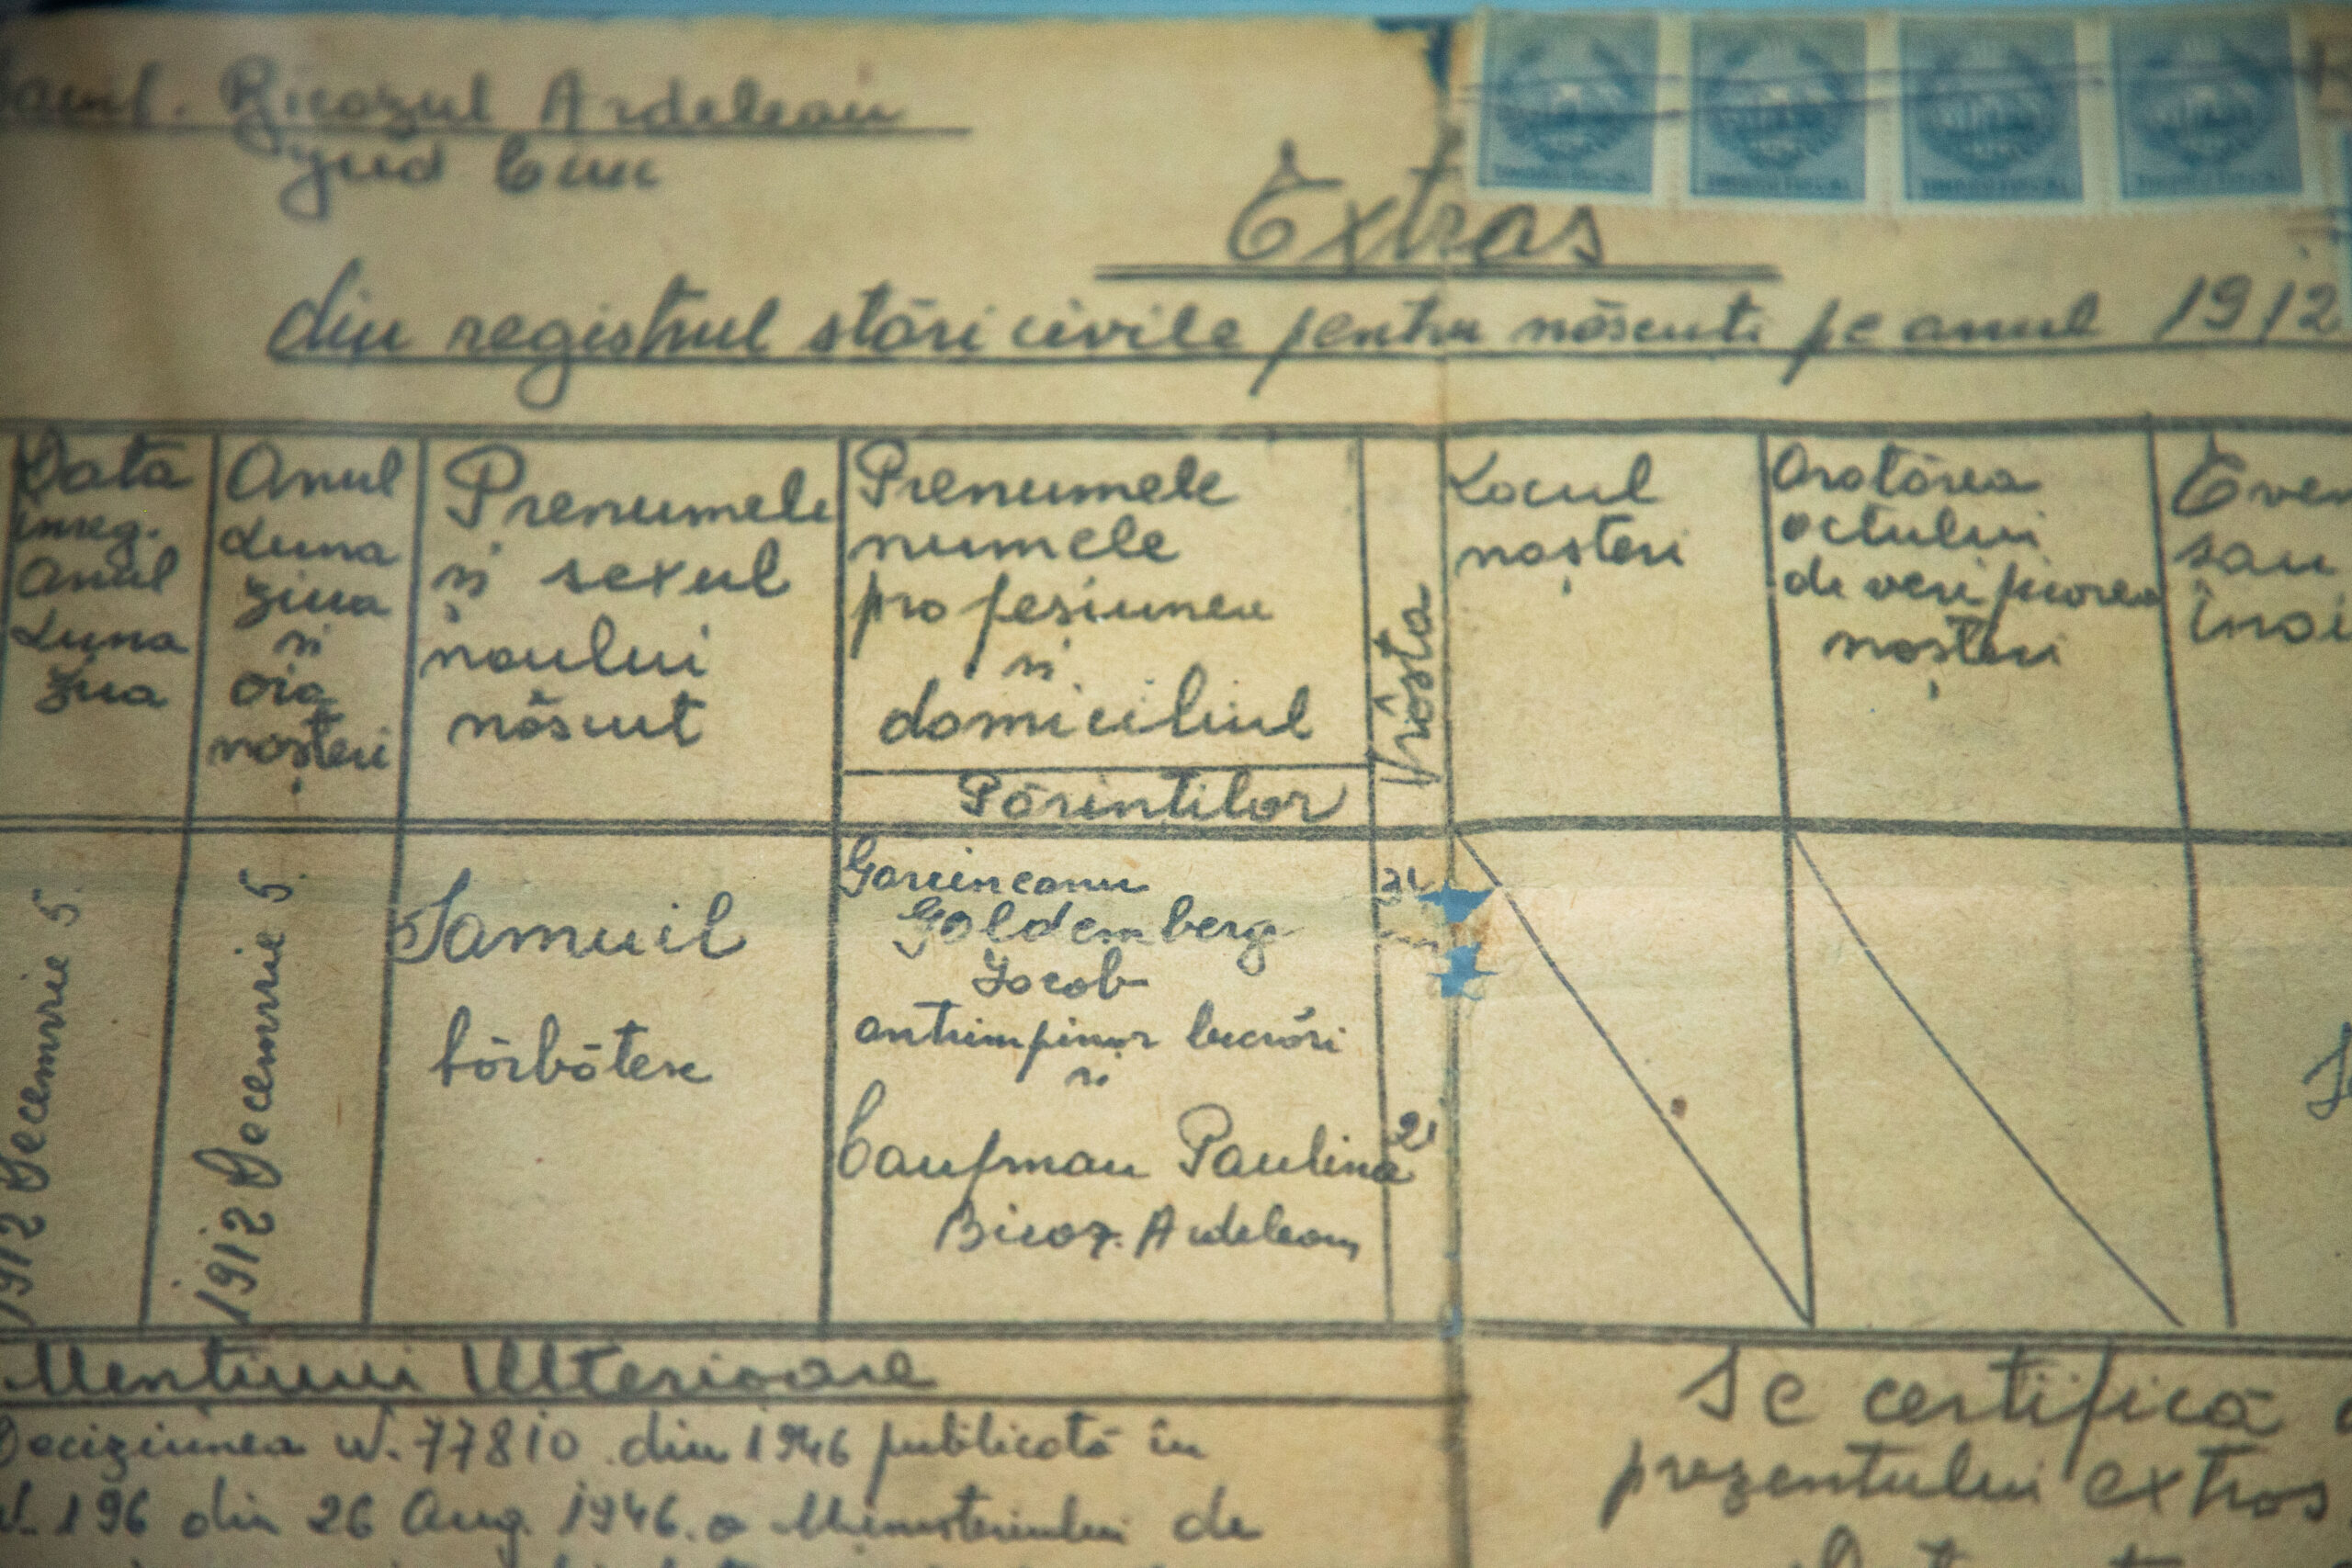 Bicazul Ardelean
jud Ciuc
Extras
din registrul stări civile pentru născuti pe anul 1912
Data
inreg.
Anul
Luna
Ziua
Anul
Luna
ziua
și
ora
nașterii
Prenumele
și sexul
noului
născut
Prenumele
numele
profesiunea
și
domiciliul
Părintilor
Vrâsta
Locul
nașteri
Aratărea
actului
de verificarea
nașteri
sau
1912 Decemvrie 5
1912 Decemvrie 5.
Samuil
bărbătesc
Goldemberg
Iacob
antreprinor lucrări
și
Caufman Paulina
21
Bicaz. Ardelean
Mentiuni Ulterioare
Deciziunea N. 77810 din 1946 publicată în
N. 196 din 26 Aug. 1946. a Ministerului de
Se certifică
prezentului extras